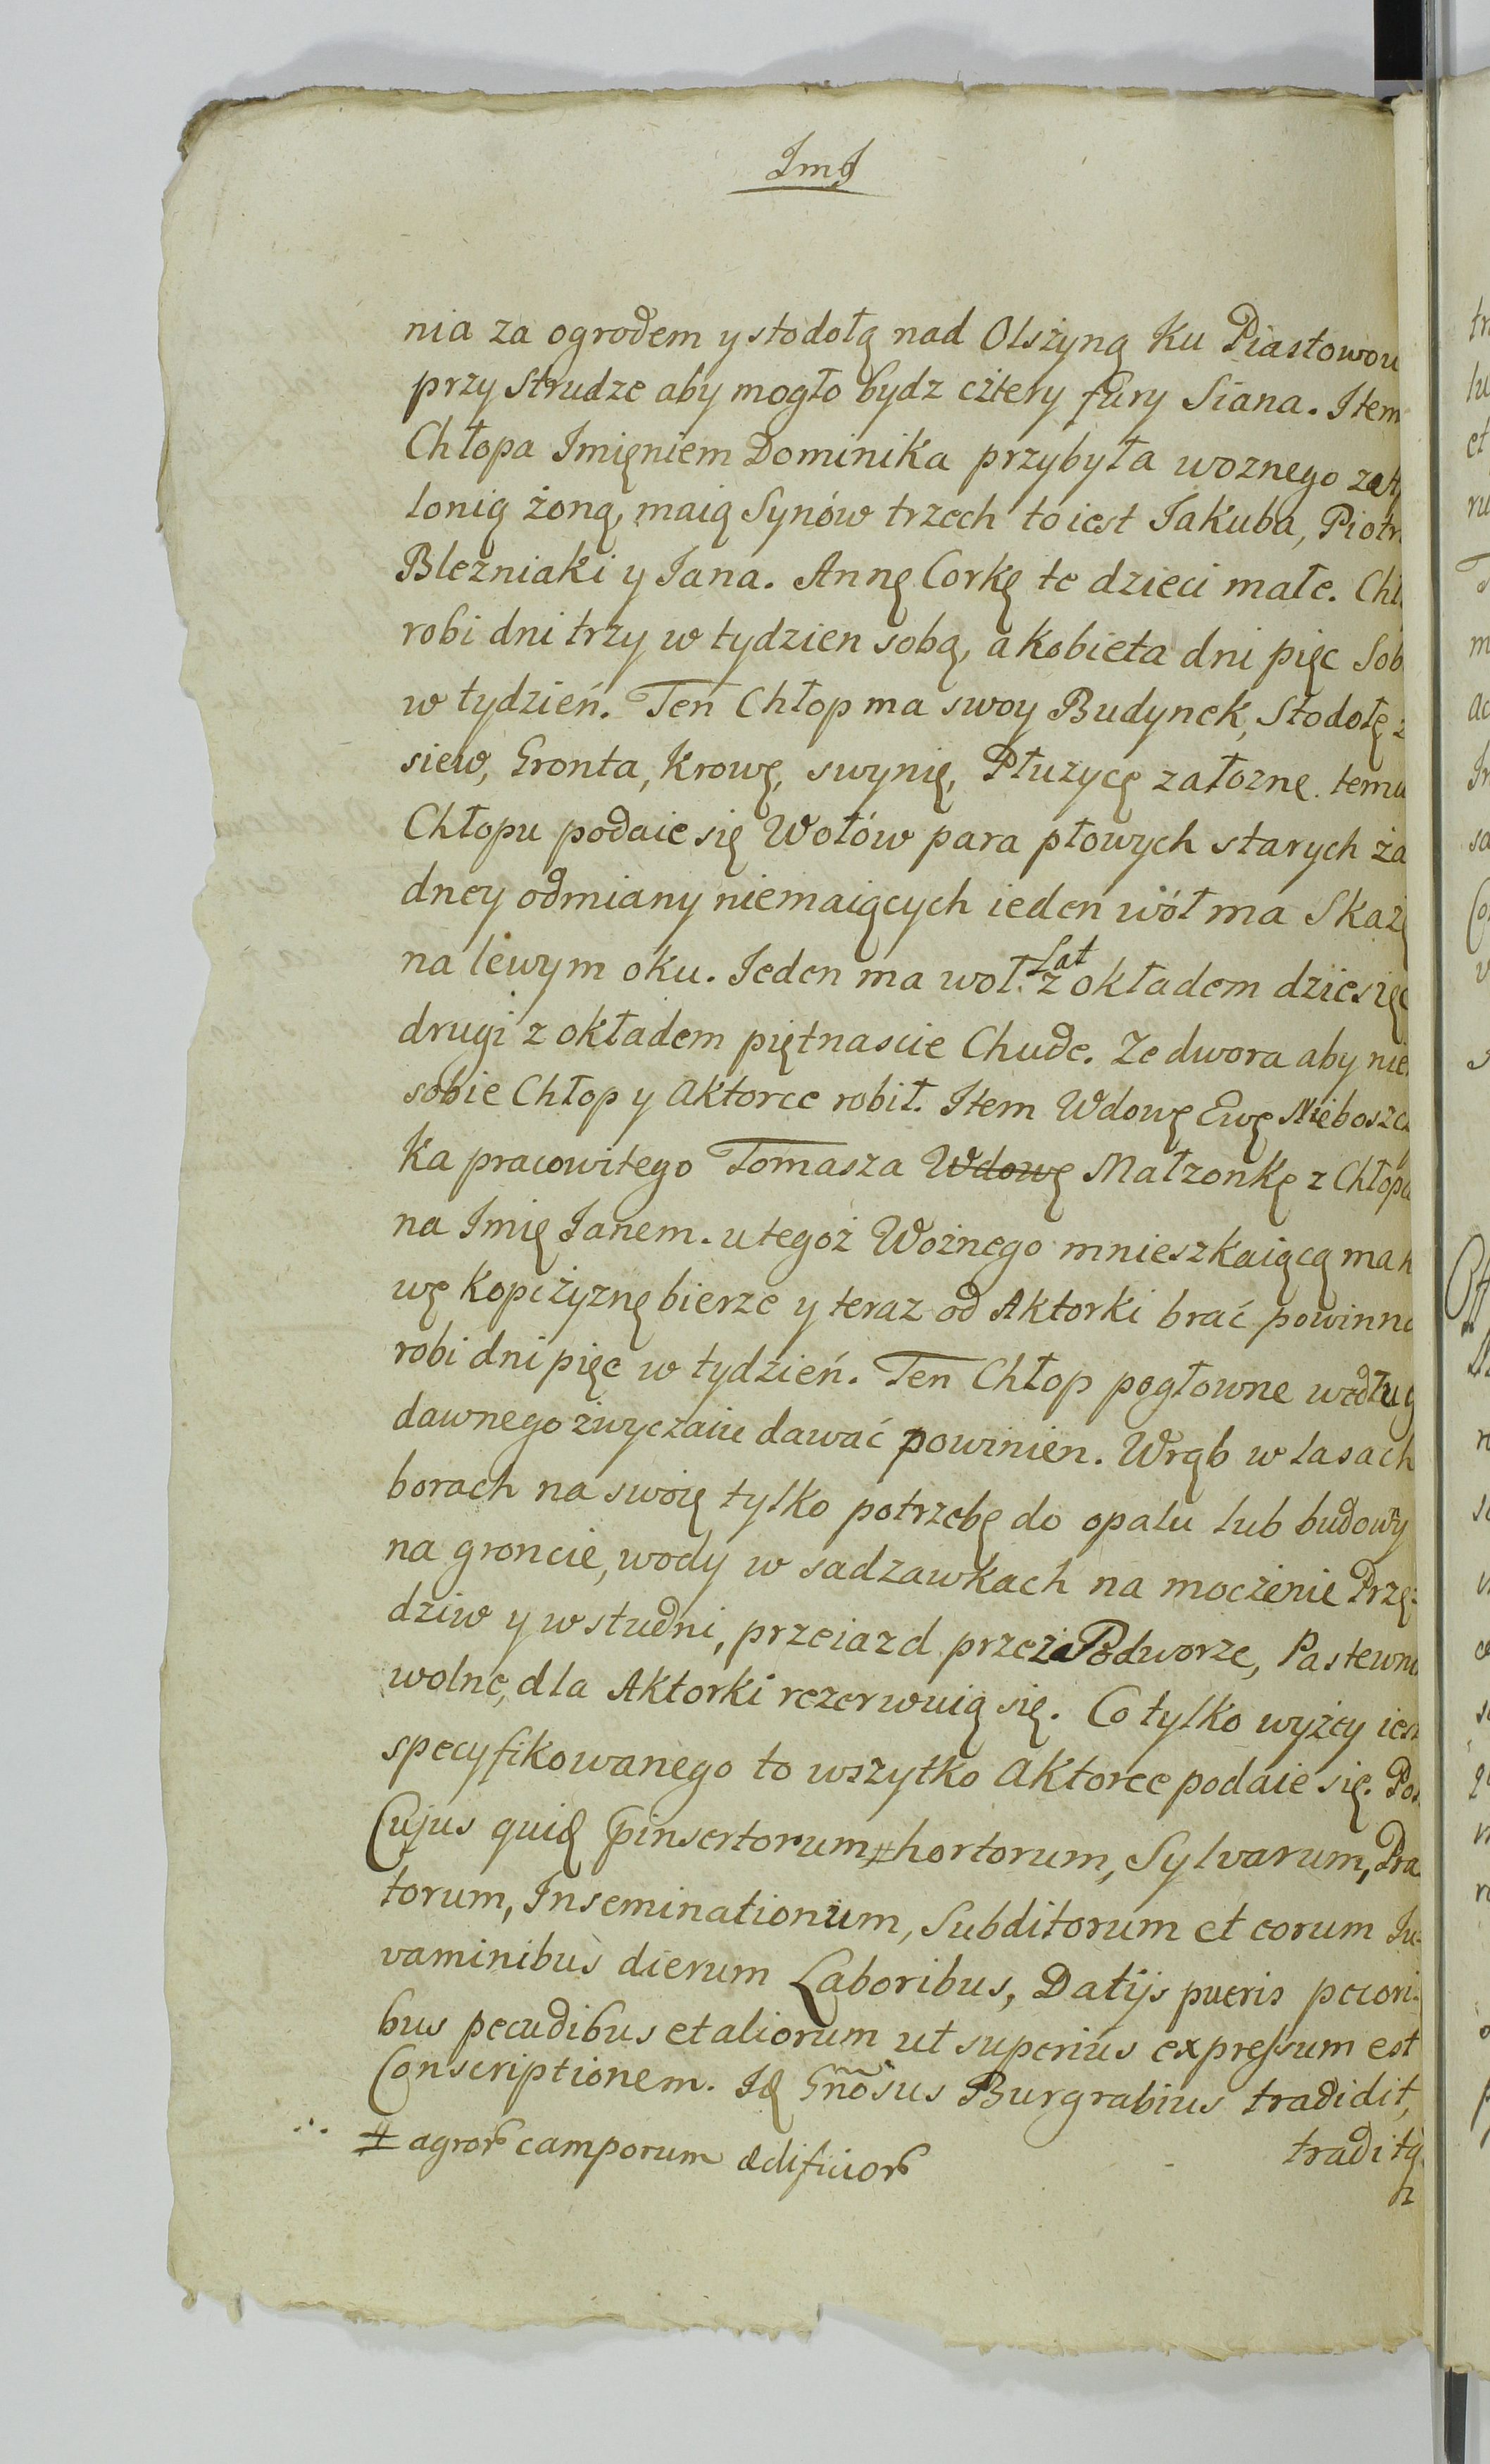 ImJ
nia za ogrodem y stodołą nad Olszyną Ku Piastowow
przy Strudze aby mogło bydz cztery fury Siana. Item
Chłopa Imięniem Dominika przybyła woznego z
lonią żoną, maią Synów trzech to iest Iakuba, Piotr
Blezniaki y Iana. Annę Corkę te dzieci małe. Chł
robi dni trzy w tydzien sobą, a kobieta dni pięc Sob
w tydzień. Ten Chłop ma swoy Budynek, Stodołę z
siew, Gronta, Krowę, swynię, Płuzycę załozne. temu
Chłopu podaie się Wołów para płowych starych ża
dney odmiany niemaiących ieden wół ma Skazę
na lewym oku. Ieden ma woł. Lat z okładem dziesięc
drugi z okładem piętnascie Chude. Ze dwora aby nie
sobie Chłop y Aktorce robił. Item Wdowę Ewę Nieboszcz
Ka pracowitego Tomasza Wdowę Małzonkę z Chłopa
na Imię Ianem. u tegoż Woźnego mnieszkaiącą ma
wę kopczyznę bierze y teraz od Aktorki brać powinna
robi dni pięc w tydzień. Ten Chłop pogłowne według
dawnego zwyczaiu dawać powinien. Wrąb w lasach
borach na swoię tylko potrzebę do opalu lub budowy
na groncie, wody w sadzawkach na moczenie Przę-
dziw y w studni, przeiazd przez Podworze, Pastewni
wolne, dla Aktorki rezerwuią się. Co tylko wyżey iest
specyfikowanego to wszytko Aktorce podaie się. Pos
Cujus quid pinsertorum # hortorum, Sylvarum, Pra
torum, Inseminationum, Subditorum et eorum Iu-
vaminibus dierum Laboribus, Datijs pueris pecori-
bus pecudibus et aliorum ut superius expressum est
Conscriptionem. Id Gnosus Burgrabius tradidit,
# agror camporum ædificior
traditq